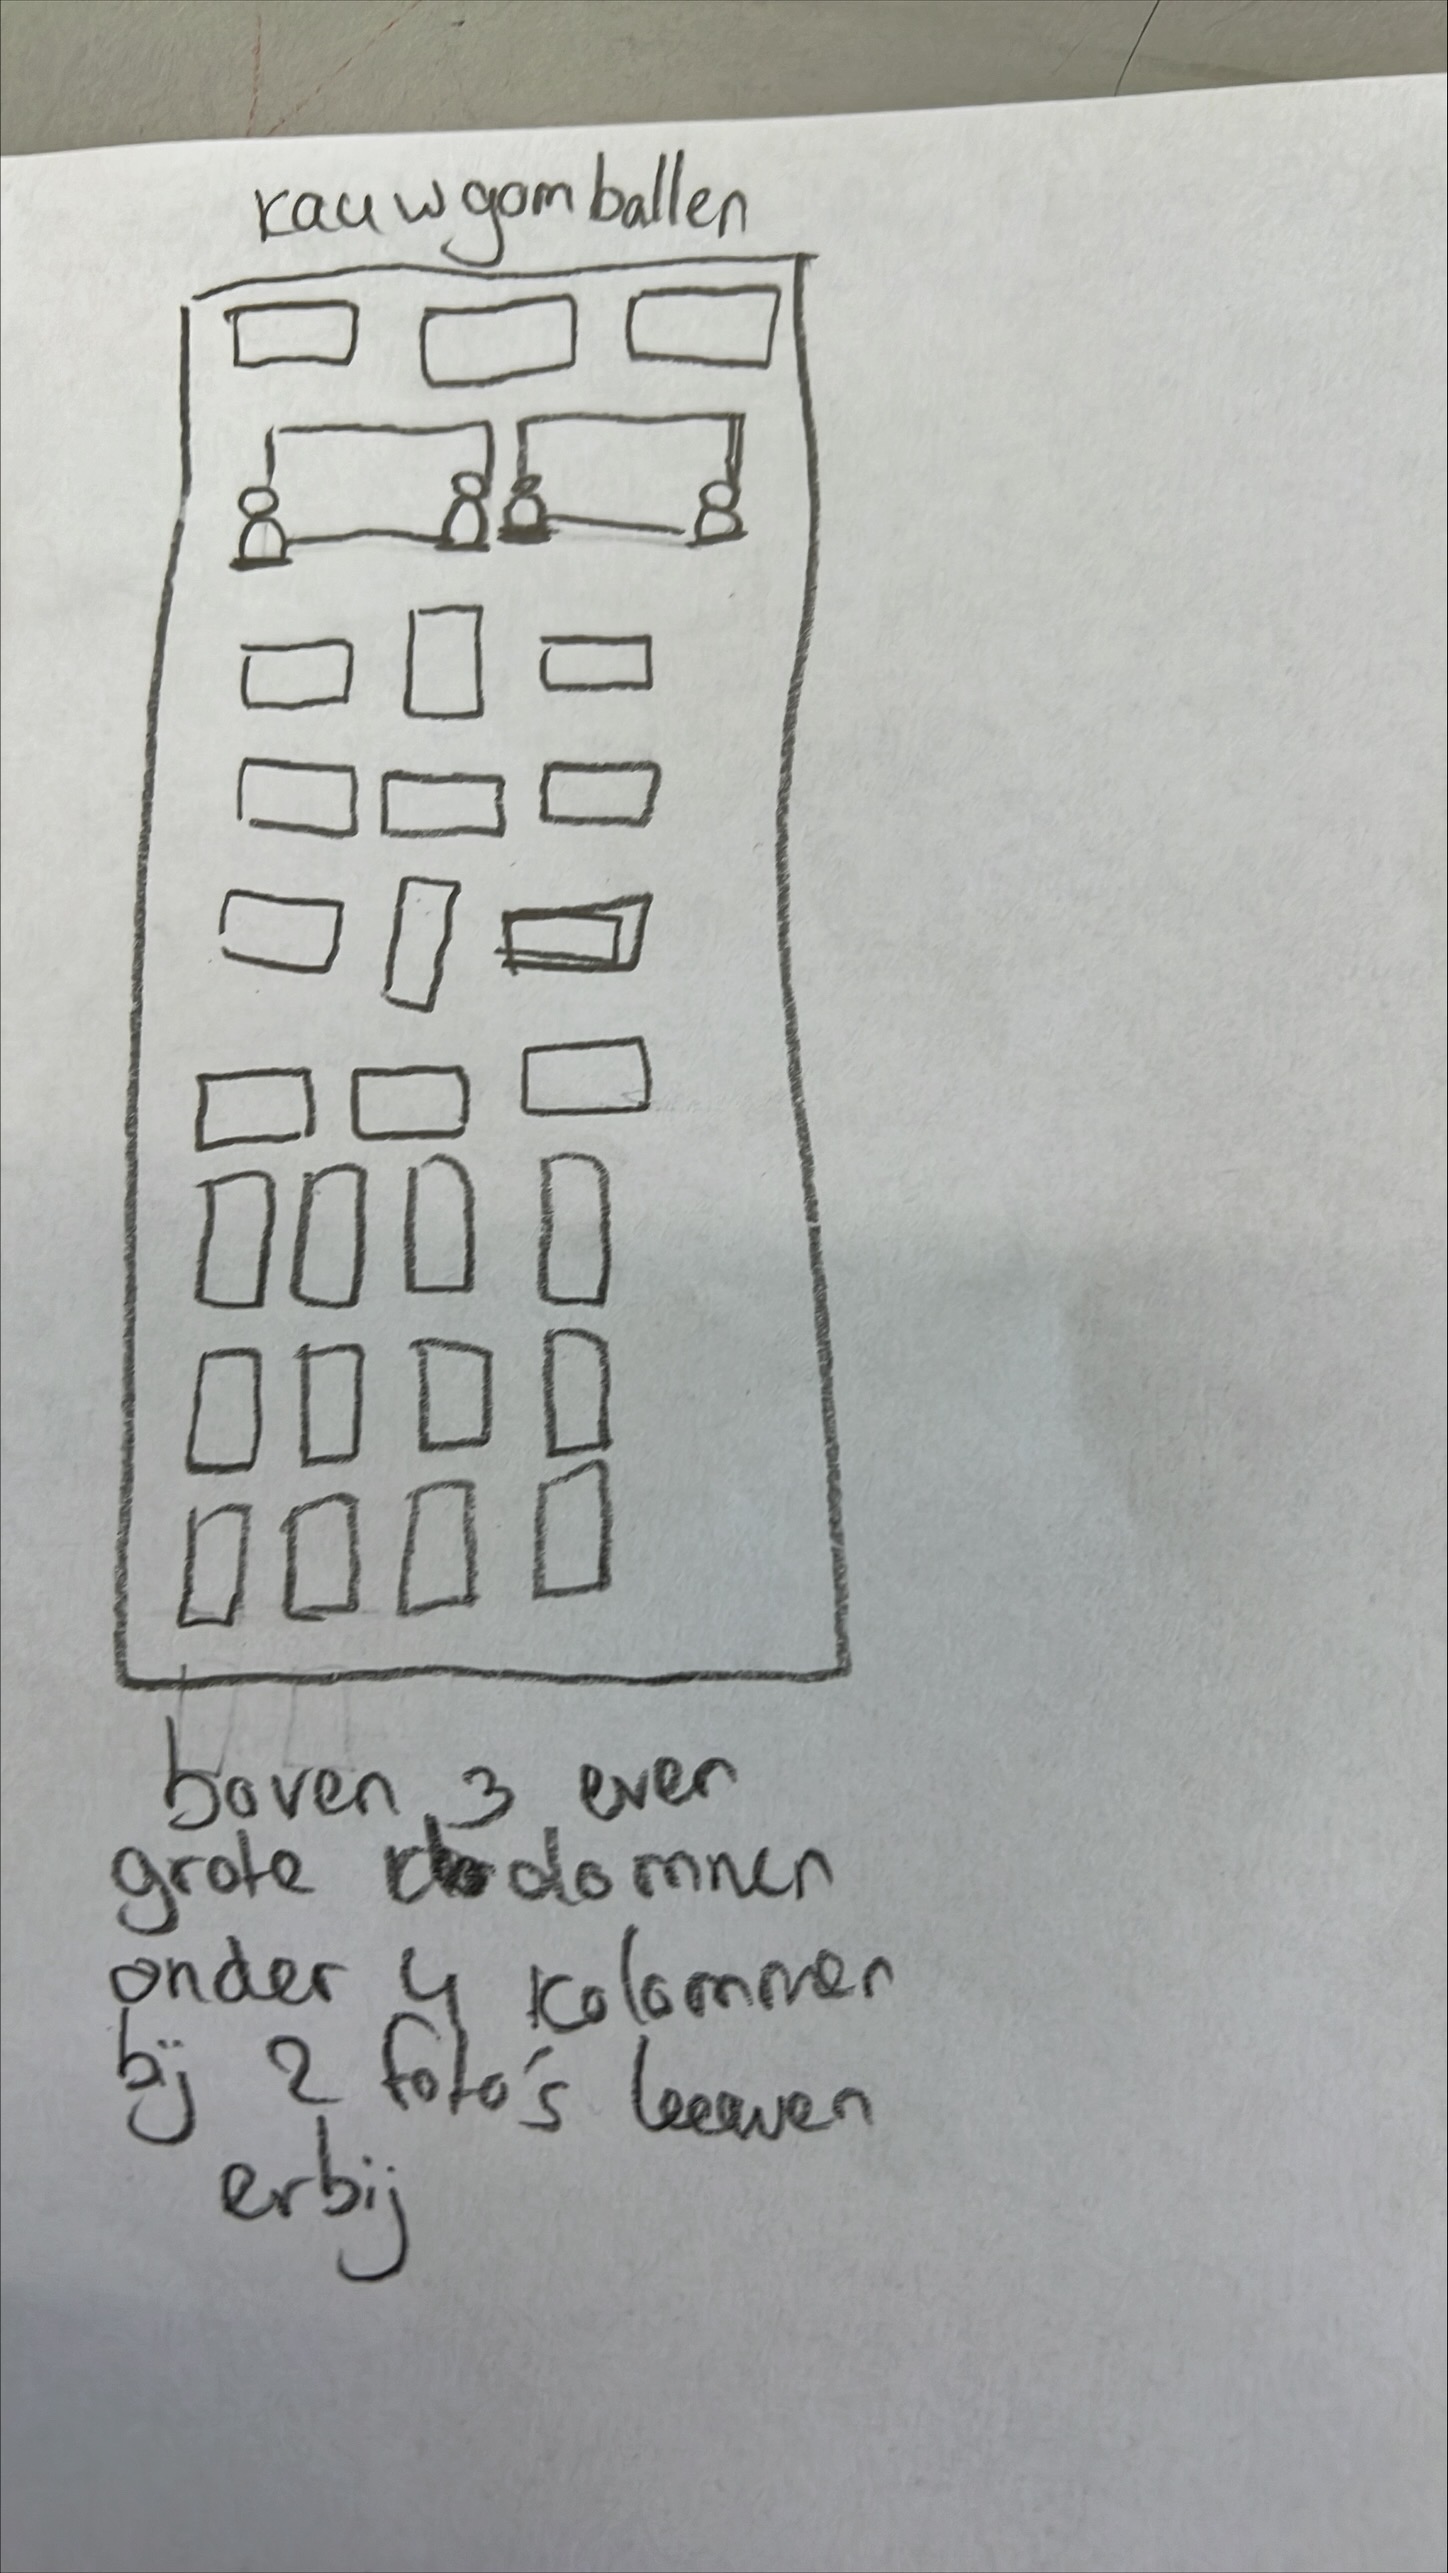 kauwgomballen
boven 3 even
grote kolomnen
onder 4 kolommen
bij 2 foto's leeuwen
erbij